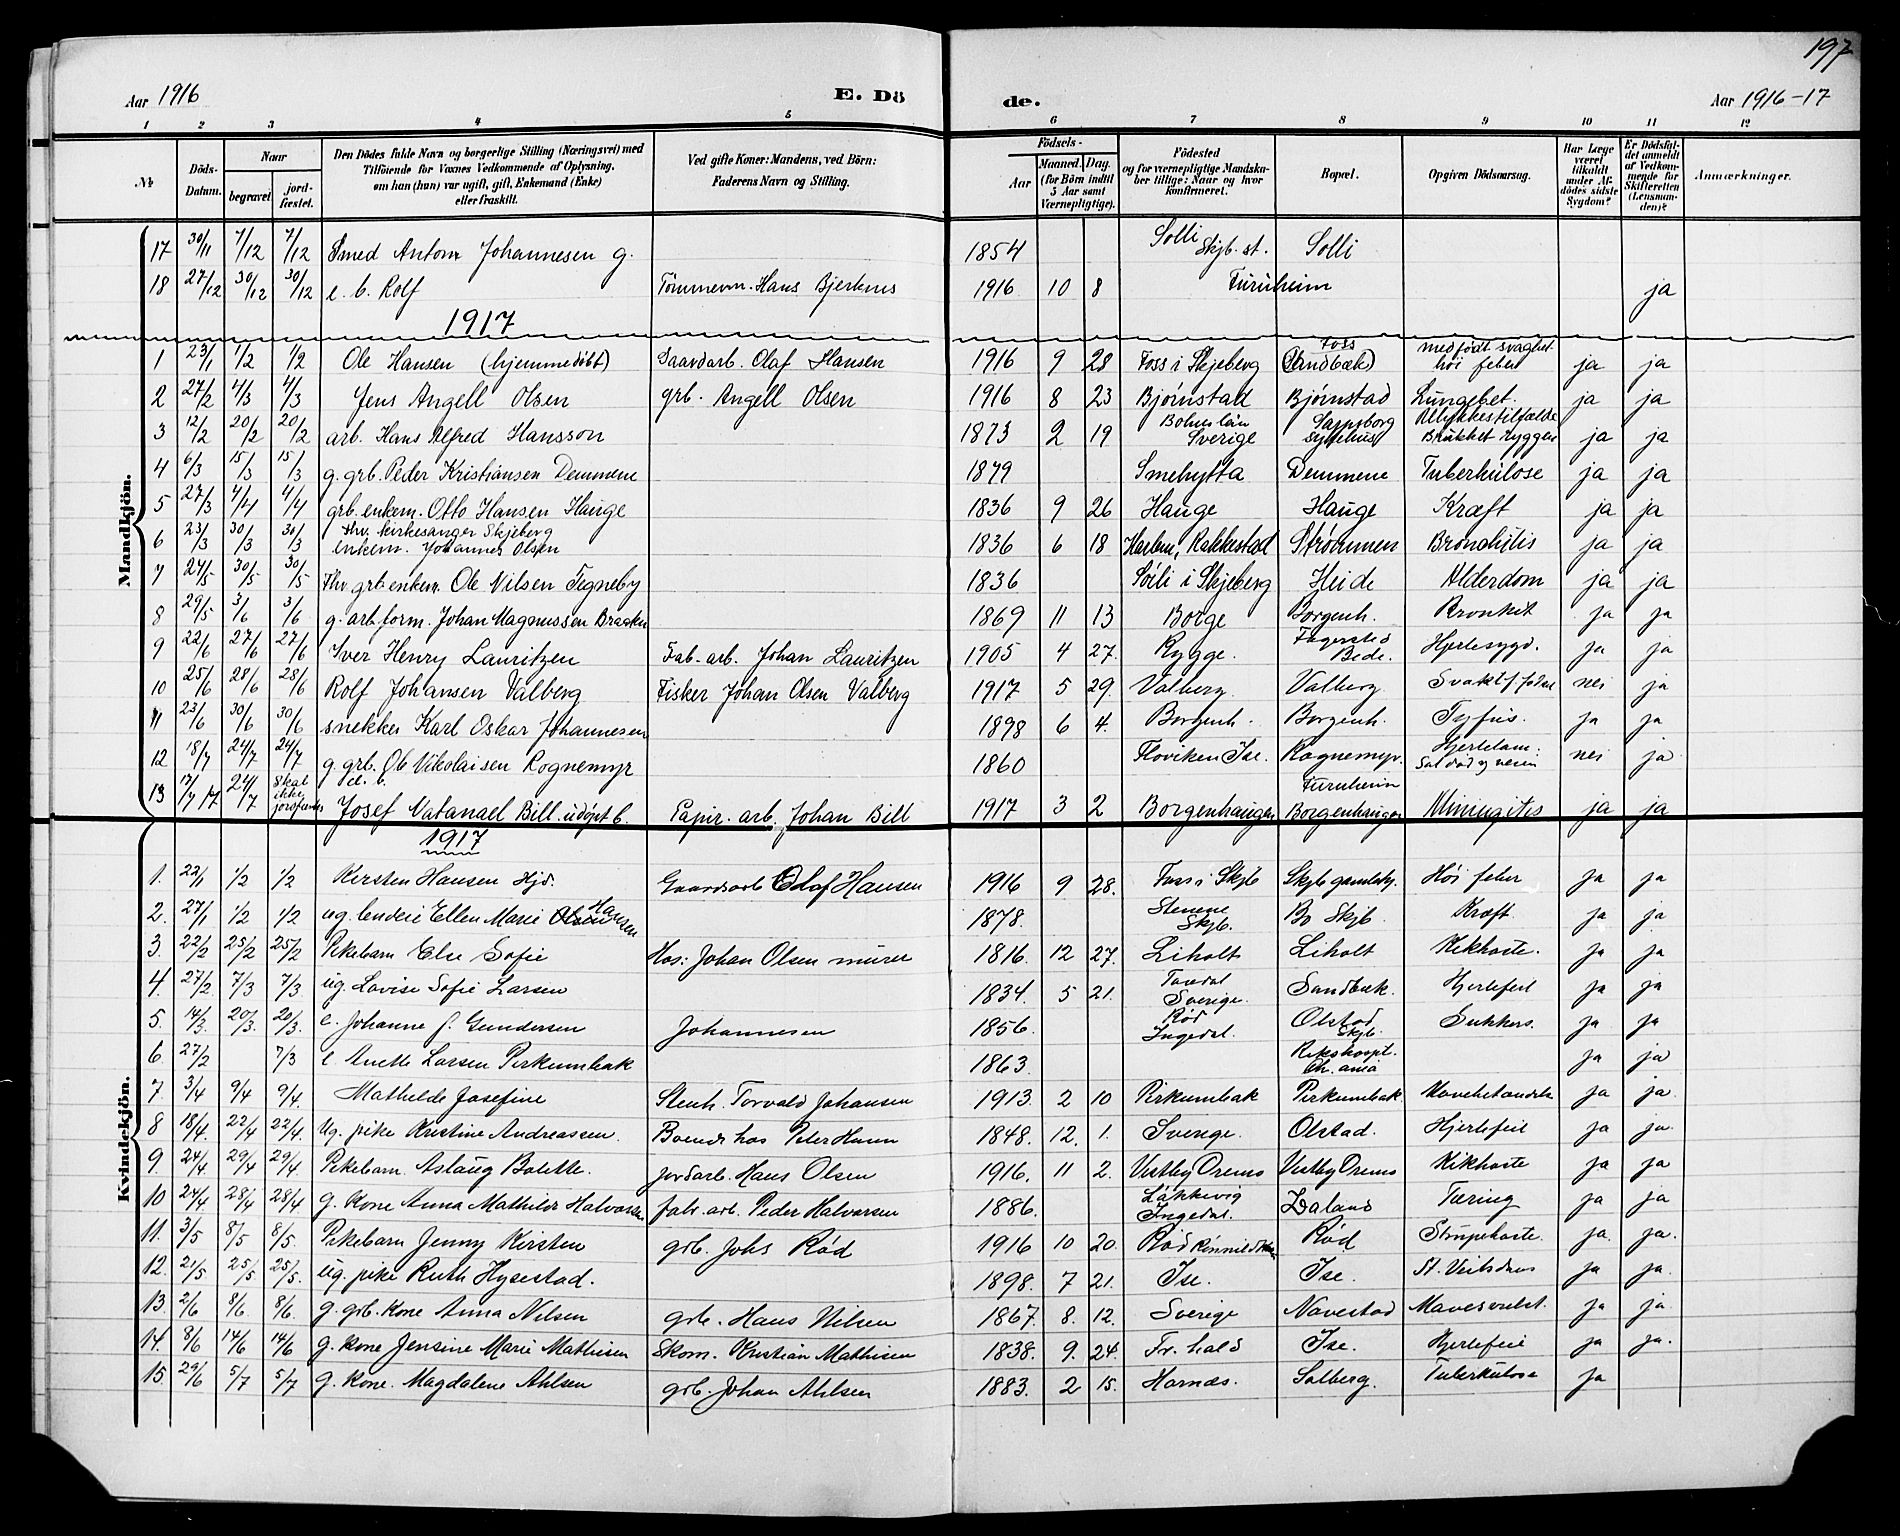 197
Aar 1916 E. Dö de. Aar 1916-17
1 2 3 4 5 6 7 8 9 10 11 12
№ Döds-Datum. Naar begravet jord-fæstet. Den Dödes fulde Navn og borgerlige Stilling (Næringsvei) med Tilföiende for Voxnes Vedkommende af Oplysning. om han (hun) var ugift, gift, Enkemand (Enke) eller fraskilt. Ved gifte Koner: Mandens, ved Börn: Faderens Navn og Stilling. Födsels- Aar Maaned. Dag. (for Börn indtil 5 Aar samt Værnepligtige). Födested og for værnepligtige Mandskaber tillige: Naar og hvor konfirmeret. Bopæl. Opgiven Dödsaarsag. Har Læge været tilkaldt under Afdödes sidste Sygdom? Er Dödsfaldet anmeldt af Vedkommende for Skifteretten (Lensmanden)? Anmærkninger.
Mandkjön.
17 30/11 7/12 7/12 Smed Anton Johannesen g. 1854 Solli Skjb. st. Solli
18 27/12 30/12 30/12 e. b. Rolf Tømmerm. Hans Bjerknes 1916 10 8 Furuheim ja
1917
1 23/1 1/2 1/2 Ole Hansen (hjemmedøbt) Gaardarb. Olaf Hansen 1916 9 28 Foss i Skjeberg Foss (Sandbæk) medfødt svaghet. høi feber ja ja
2 27/2 4/3 4/3 Jens Angell Olsen grb. Angell Olsen 1916 8 23 Bjørnstad Bjørnstad Lungebet. ja ja
3 12/2 20/2 20/2 arb. Hans Alfred Hansson 1873 2 19 Bohuslän Sverige Sarpsborg sykehus Ulykkestilfælde Brukket ryggen ja ja
4 6/3 15/3 15/3 g. grb. Peder Kristiansen Demmene 1879 Smehytta Demmene Tuberkulose ja ja
5 27/3 4/4 4/4 grb. enkem. Otto Hansen Hauge 1836 9 26 Hauge Hauge Kræft ja ja
6 23/3 30/3 30/3 fhv. kirkesanger Skjeberg enkem. Johannes Olsen 1836 6 18 Harlem, Rakkestad Strømmen Bronchitis ja ja
7 24/5 30/5 30/5 Fhv grb enkem. Ole Nilsen Tegneby 1836 Solli i Skjeberg Heide Alderdom ja ja
8 29/5 3/6 3/6 g. arb.form. Johan Magnussen Braaten 1869 11 13 Borge Borgenh. Bronkit. ja ja
9 22/6 27/6 27/6 Iver Henry Lauritzen Fab-arb. Johan Lauritzen 1905 4 27. Rygge. Fagersted Bede. Hjertesygd. ja ja
10 25/6 28/6 28/6 Rolf Johansen Valberg Fisker Johan Olsen Valberg 1917 5 29. Valberg. Valberg. Svakt f. født nei ja
11 23/6 30/6 30/6 snekker Karl Oskar Johannesen 1898 6 4. Borgenh. Borgenh. Tyfus. ja ja
12 18/7 24/7 24/7 g grb. Ole Nikolaisen Rognemyr 1860 Floviken Ise. Rognemyr. Hjertelam. nei ja
13 17/7 17 24/7 Skal ikke jordfæstes d. b. Josef Natanael Bill. udøpt b. Papir. arb. Johan Bill 1917 3 2 Borgenhaugen Furuheim Borgenhaugen Miningitis ja ja
Kvindekjön.
1917
1. 22/1 1/2 1/2 Kersten Hansen Hjd. Gaardsarb Olaf Hansen 1916 9 28. Foss i Skjb Skjb gamlehj. Høi feber ja ja
2. 27/1 1/2 1/2 ug. Ellen Marie Olsen Hansen 1878. Stenene Skjb. Bo Skjb. Kræft. ja ja
3. 22/2 25/2 25/2 Pikebarn Else Sofie Hos: Johan Olsen murer 1816. 12 27. Liholt Liholt Kikhoste. ja ja
4. 27/2. 7/3 7/3 ug. Lovise Sofie Larsen 1834. 5 21. Tandal Sverige. Sandbæk. Hjertefeil ja ja
5. 14/3. 20/3. 20/3. e. Johanne J. Gundersen Johannesen 1856. Rød Ingedal. Olstad Skjb. Sukkers. ja ja
6. 27/2 7/3 e Anette Larsen Pirkumbak 1863. Rikshospit. Ch. ania ja ja
7. 3/4 9/4 9/4. Mathilde Josefine Stenh. Torvald Johansen 1913. 2 10 Pirkumbak Pirkumbak. ja ja.
8 18/4. 22/4 22/4. Ug. pike Kristine Andreassen. Boende hos Peter Hunn 1848. 12. 1. Sverige. Olstad. Hjertefeil ja ja.
9. 24/4. 29/4 29/4. Pikebarn. Aslaug Bolette. Jordarb. Hans Olsen 1916. 11 2. Vestby Orems Vestby Orems Kikhoste ja ja
10 24/4 28/4 28/4. g. kone Anna Mathilde Halvorsen fab. arb. Peder Halvorsen 1886. Løkkevig Ingedal. Daland Tæring ja ja
11. 3/5 8/5 8/5. Pikebarn Jenny Kirsten grb. Johs Rød 1916 10 20. Rød Rød Strupehoste. ja ja.
12. 21/5 25/5 25/5. ug. pike Ruth Hysestad. 1898. 7 21. Ise. Ise. St. Veitsdans ja ja
13. 2/6 8/6 8/6. g. grb. kone Anna Nilsen grb. Hans Nilsen 1867. 8. 12. Sverige Navestad Mavesvulst. ja ja.
14. 8/6 14/6 14/6 g. kone Jensine Marie Mathisen Skom. Kristian Mathisen 1838. 9. 24. Fr. hald Ise. Hjertefeil ja ja.
15. 29/6 5/7 5/7 g. kone. Magdalene Ahlsen grb. Johan Ahlsen 1883. 2 15. Hornæs. Solberg. Tuberkulose ja